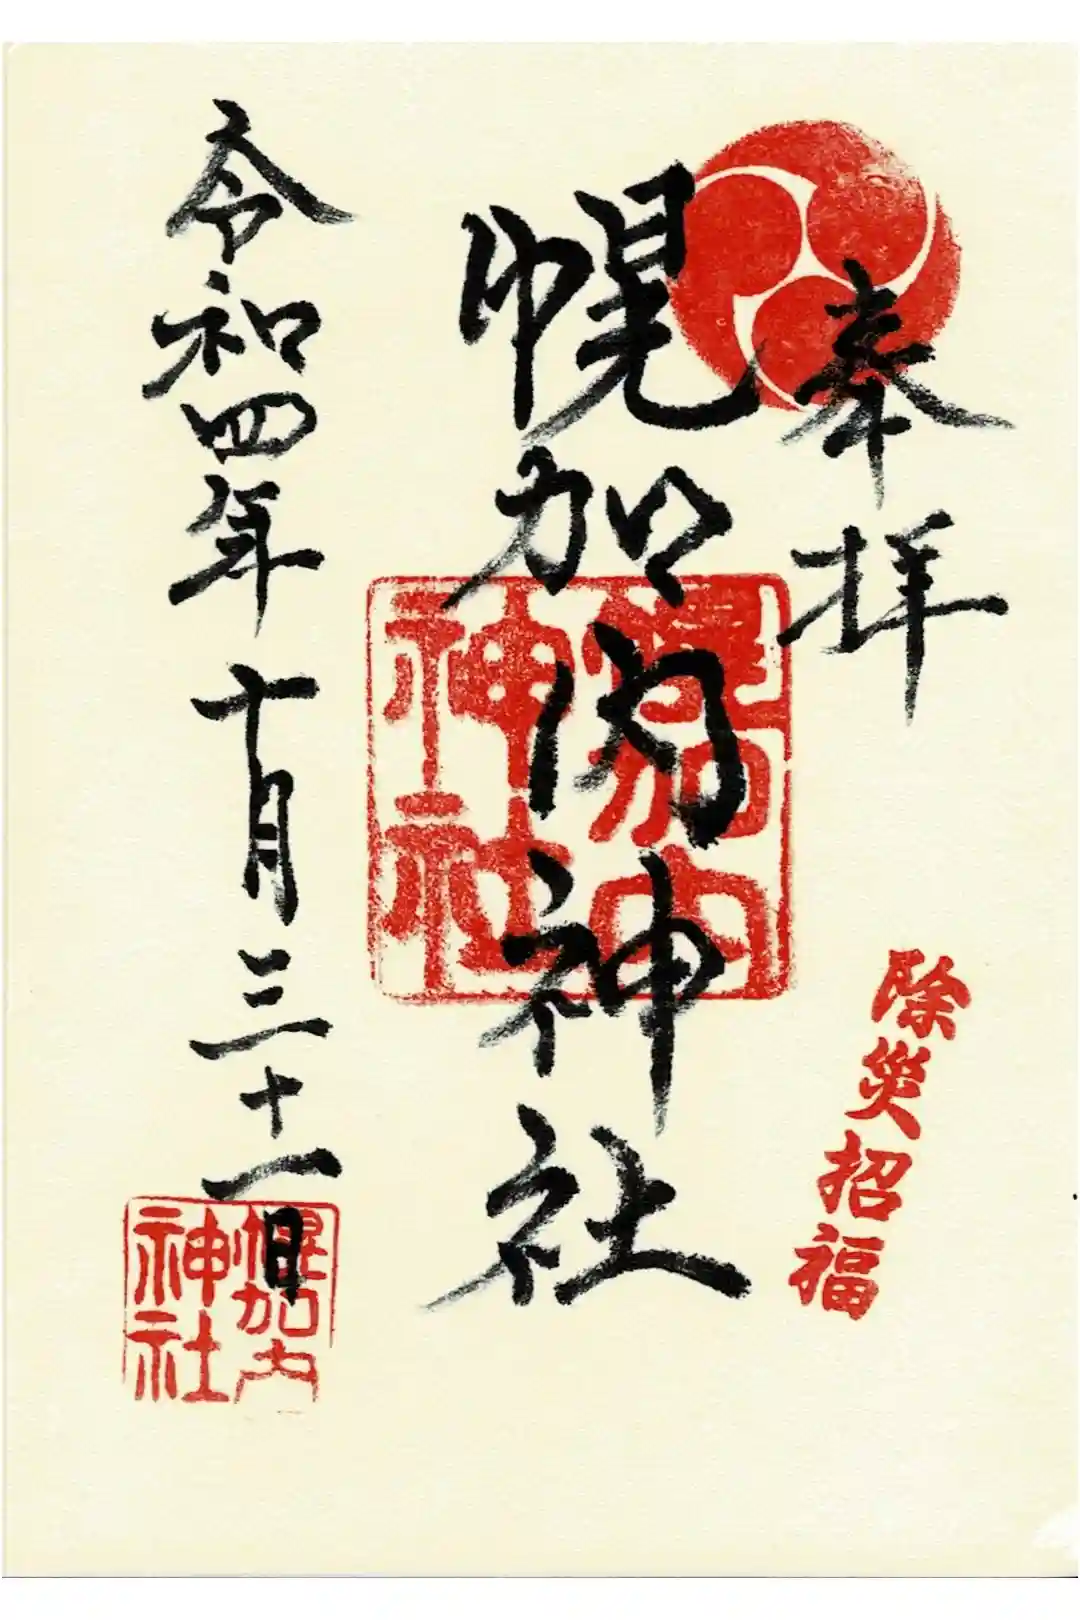 奉拝
除災招福
幌加内神社
幌加内
神社
令和四年十月三十一日
幌加内
神社